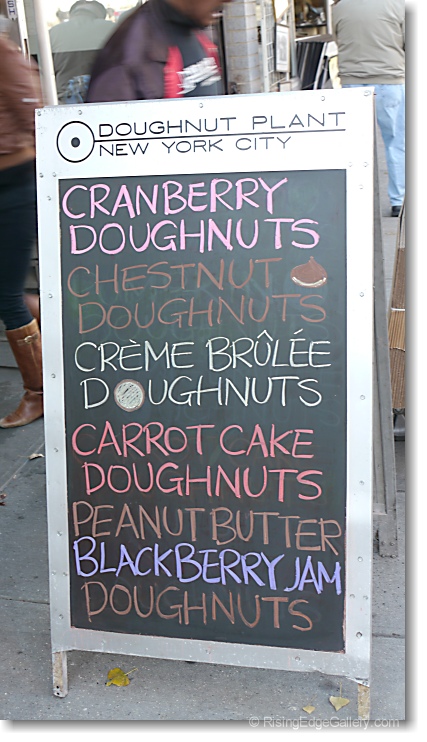 DOUGHNUT PLANT
NEW YORK CITY
CRANBERRY
DOUGHNUTS
CHESTNUT
DOUGHNUTS
CRÈME BRÛLÉE
DOUGHNUTS
CARROT CAKE
DOUGHNUTS
PEANUT BUTTER
BLACKBERRY JAM
DOUGHNUTS
© RisingEdgeGallery.com